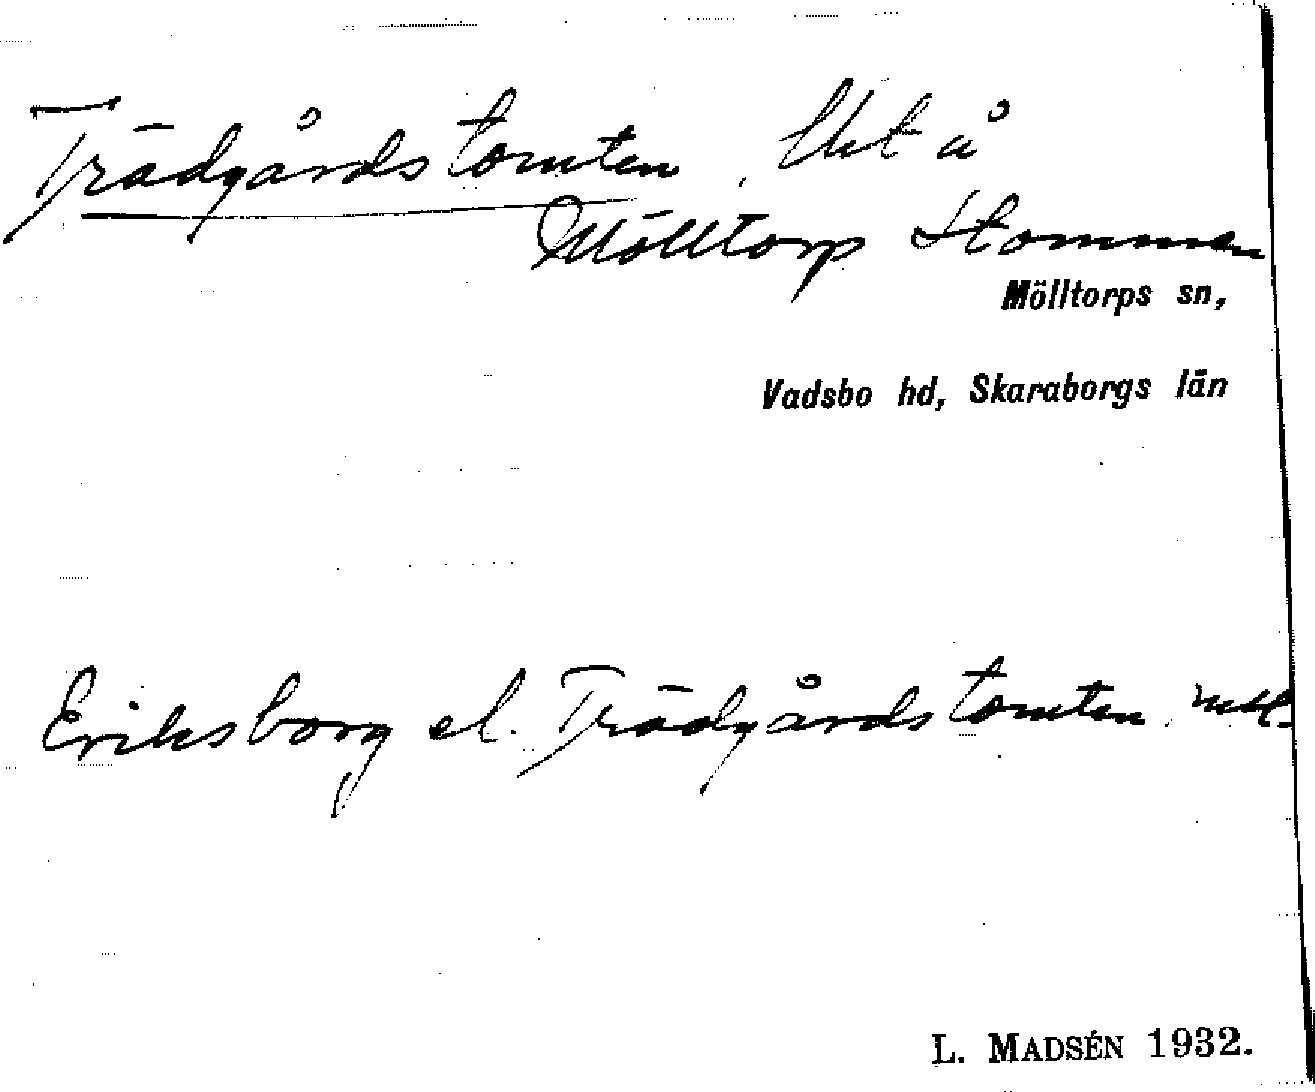 Trädgårdstomten, lht å
Mölltorp Stommen
Mölltorps sn,
Vadsbo hd, Skaraborgs län
Eriksborg el. Trädgårdstomten
L. MADSÉN 1932.